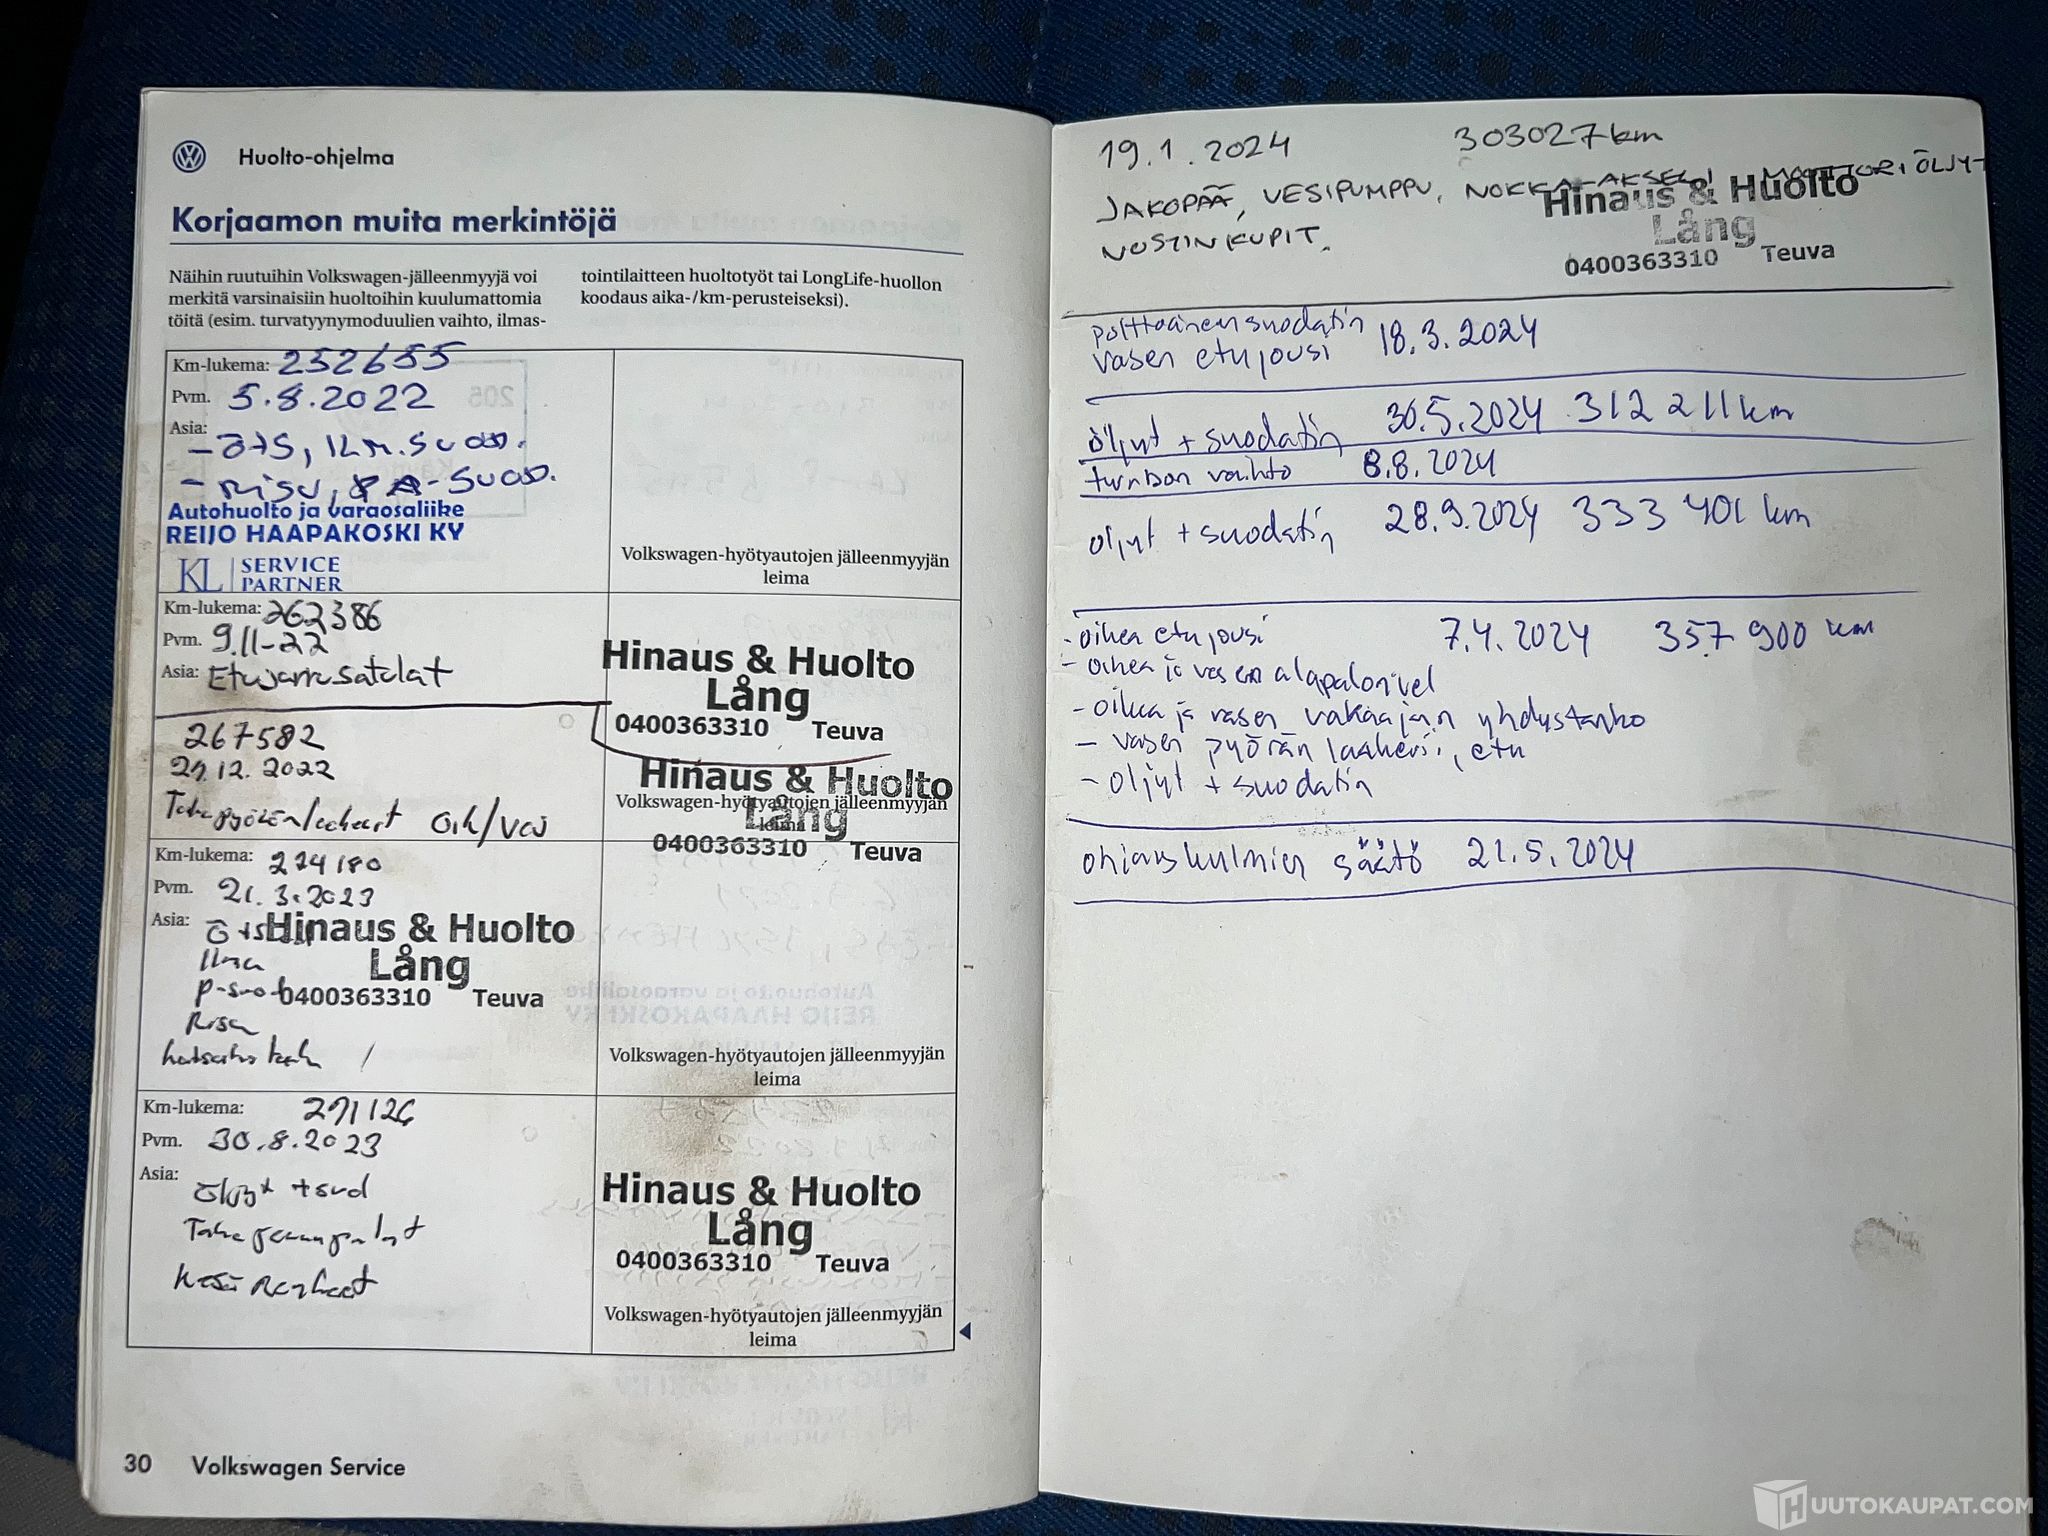 Huolto-ohjelma
Korjaamon muita merkintöjä
Näihin ruutuihin Volkswagen-jälleenmyyjä voi
merkitä varsinaisiin huoltoihin kuulumattomia
töitä (esim. turvatyynymoduulien vaihto, ilmas-
tointilaitteen huoltotyöt tai LongLife-huollon
koodaus aika-/km-perusteiseksi).
Km-lukema: 252655
Pvm. 5.8.2022
Asia:
- Ö+S, ILM.SUOD.
- RISU, PA-SUOD.
Autohuolto ja varaosaliike
REIJO HAAPAKOSKI KY
KL SERVICE
PARTNER
Volkswagen-hyötyautojen jälleenmyyjän
leima
Km-lukema: 262386
Pvm. 9.11-22
Asia: Etujarrusatulat
Hinaus & Huolto
Lång
0400363310 Teuva
267582
12.2022
Oik/Vas
Hinaus & Huolto
Volkswagen-hyötyautojen jälleenmyyjän
Lång
leima
0400363310 Teuva
Km-lukema: 274180
Pvm. 21.3.2023
Asia:
Hinaus & Huolto
Ilma
Lång
0400363310 Teuva
Risu
Volkswagen-hyötyautojen jälleenmyyjän
leima
Km-lukema: 291126
Pvm. 30.8.2023
Asia:
Öljyt + suod
Takajarrupalat
Kesärenkaat
Hinaus & Huolto
Lång
0400363310 Teuva
Volkswagen-hyötyautojen jälleenmyyjän
leima
30 Volkswagen Service
19.1.2024 303027 km
JAKOPÄÄ, VESIPUMPPU, NOKKA-AKSELI MOOTTORIÖLJYT
NOSTINKUPIT.
Hinaus & Huolto
Lång
0400363310 Teuva
polttoaineensuodatin
vasen etujousi 18.3.2024
öljyt + suodatin 30.5.2024 312 211 km
turbon vaihto 8.8.2024
öljyt + suodatin 28.9.2024 333 401 km
- oikea etujousi 7.4.2024 357 900 km
- oikea ja vasen alapallonivel
- oikea ja vasen vakaajan yhdystanko
- vasen pyörän laakeri, etu
- öljyt + suodatin
ohjauskulmien säätö 21.5.2024
HUUTOKAUPAT.COM